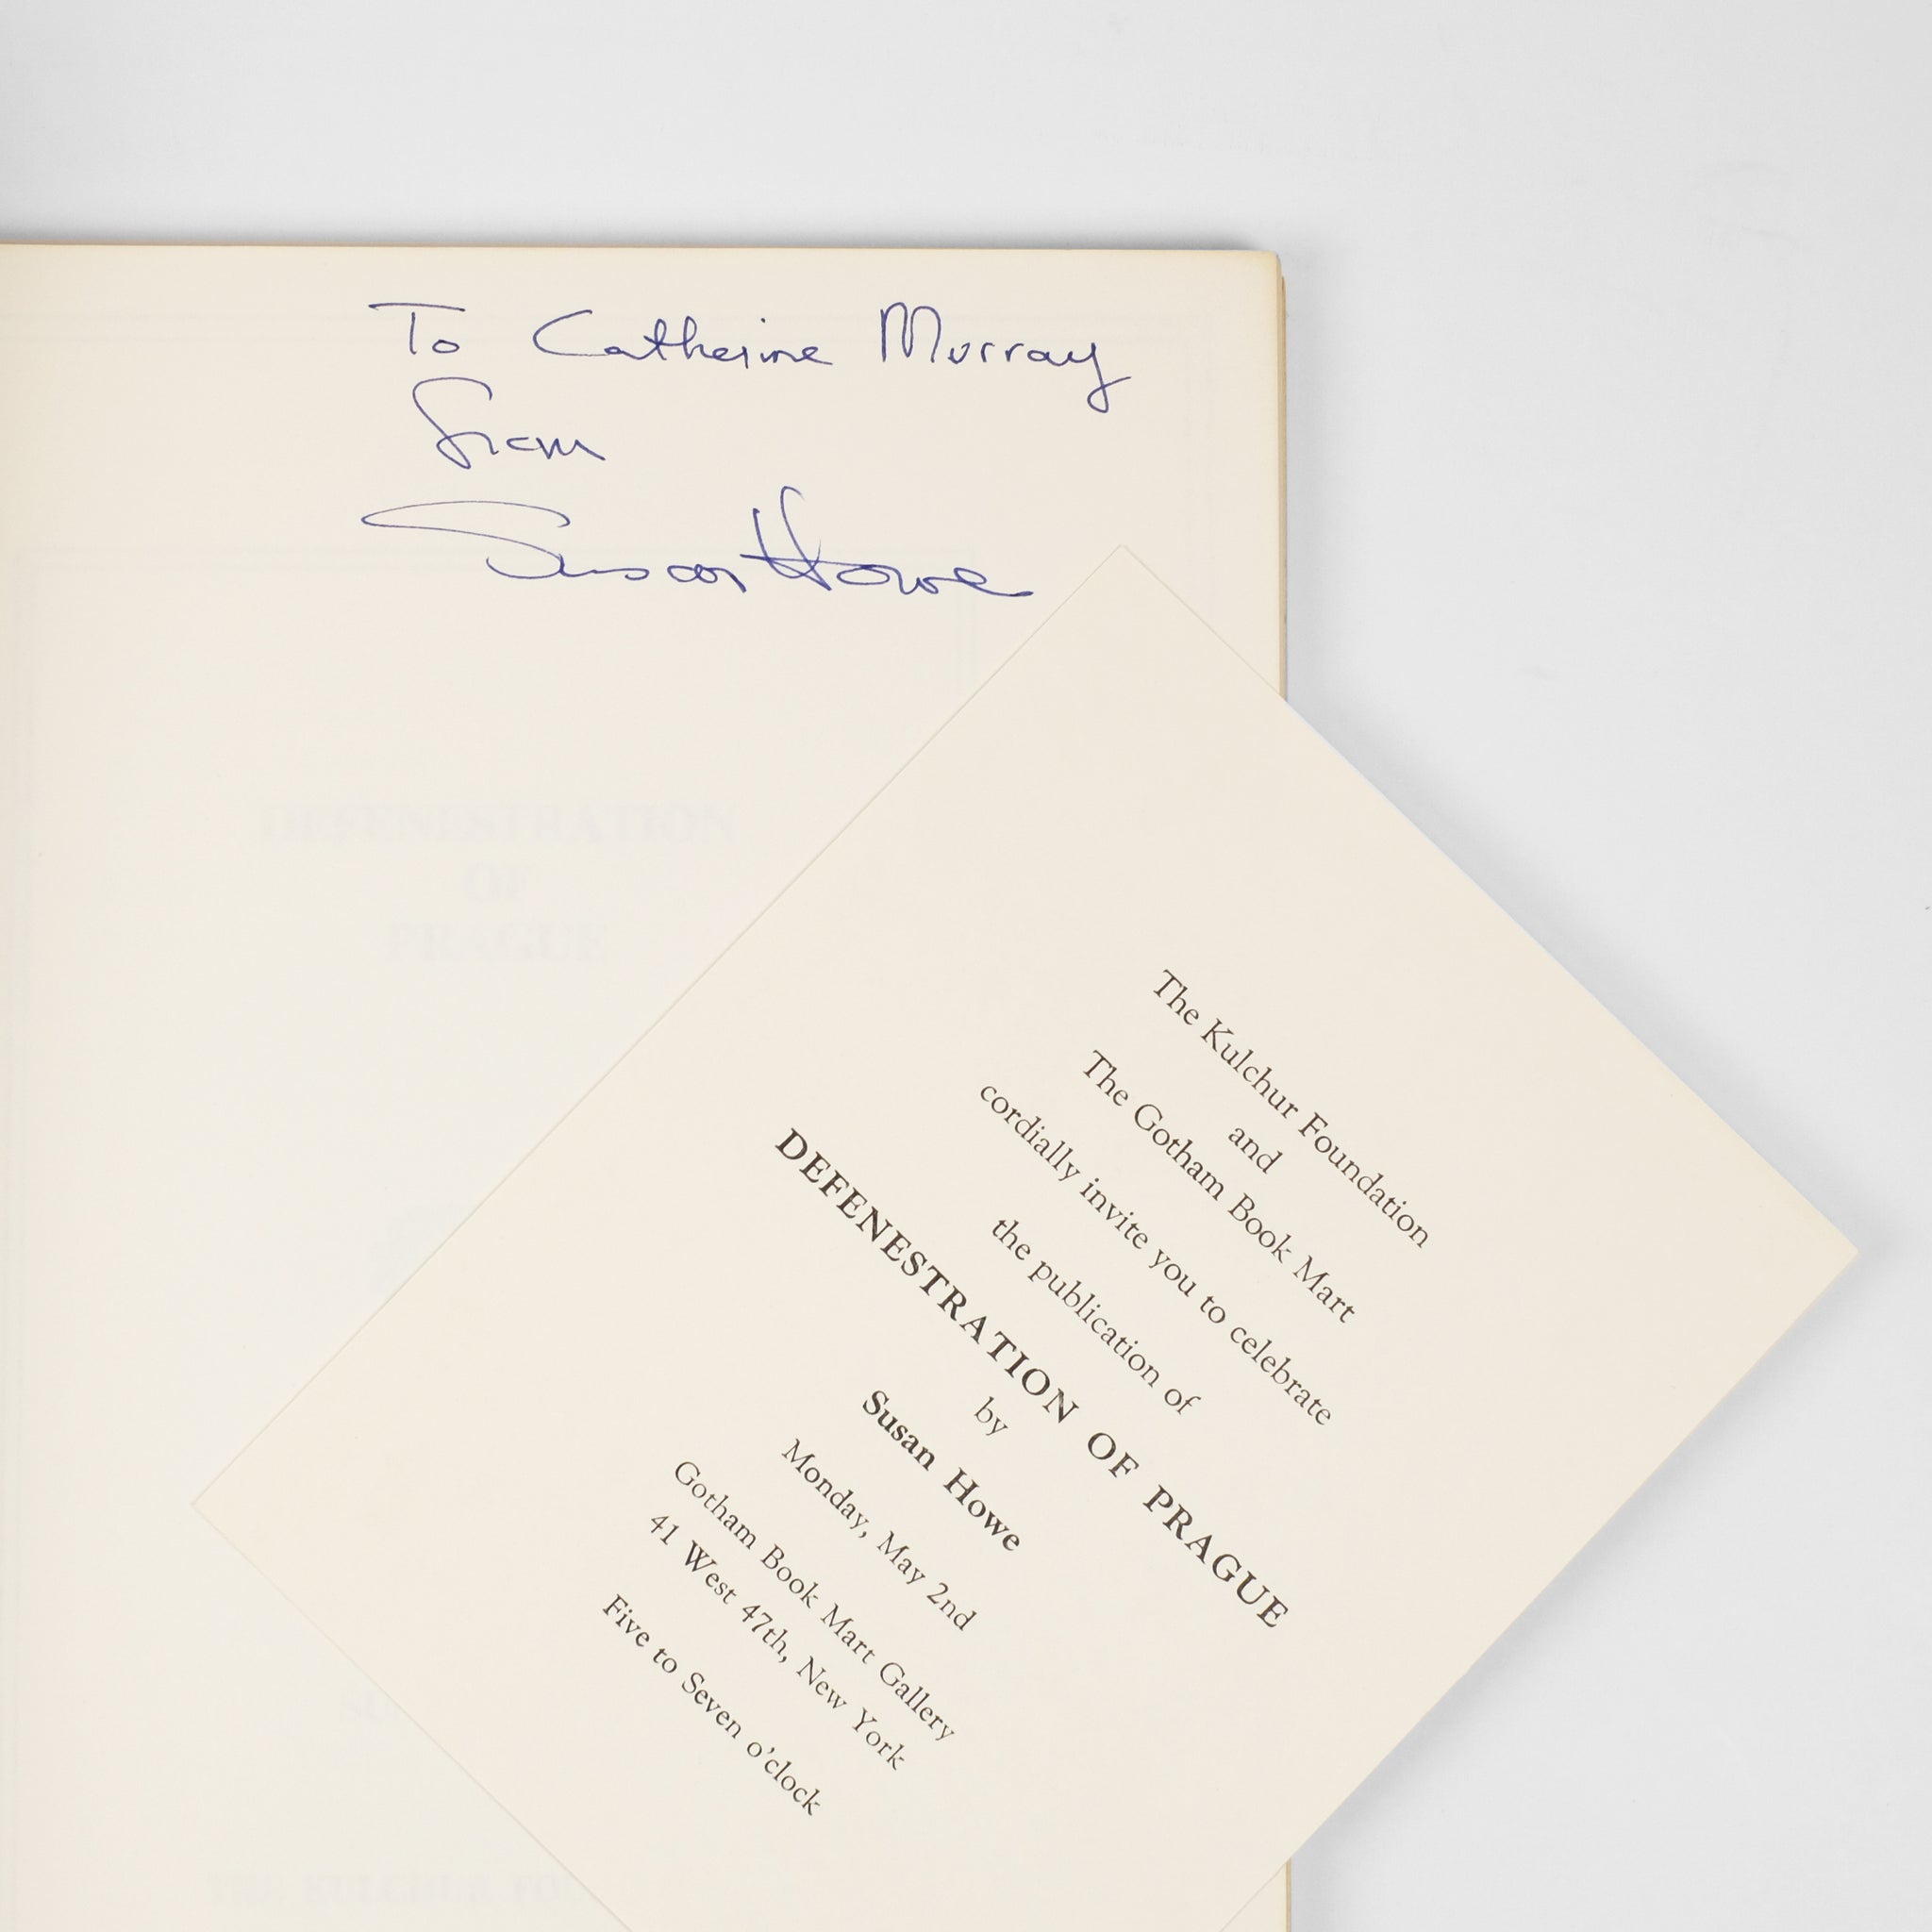 To Catherine Murray
from
Susan Howe
DEFENESTRATION
OF
PRAGUE
The Kulchur Foundation
and
The Gotham Book Mart
cordially invite you to celebrate
the publication of
DEFENESTRATION OF PRAGUE
by
Susan Howe
Monday, May 2nd
Gotham Book Mart Gallery
41 West 47th, New York
Five to Seven o'clock